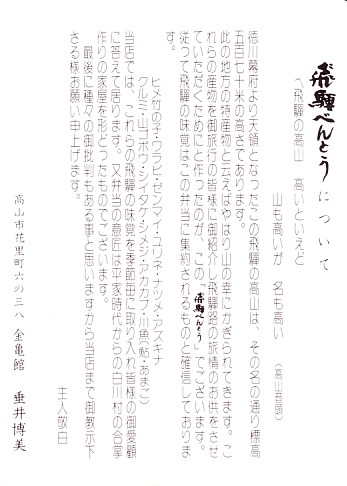 飛騨べんとうについて
〽飛騨の高山 高いといえど
山も高いが 名も高い (高山音頭)
徳川幕府より天領となったこの飛騨の高山は、その名の通り標高
五百七十米の高さであります。
此の地方の特産物と云えばやはり山の幸にかぎられてきます。こ
れらの産物を御旅行の皆様に御紹介し飛騨路の旅情のお供をさせ
ていただくためにと作ったのが、この「飛騨べんとう」でございます。
従って飛騨の味覚はこの弁当に集約されるものと確信しておりま
す。
ヒメ竹の子・ワラビ・ゼンマイ・ユリネ・ナツメ・アズキナ
クルミ・山ゴボウ・シイタケ・シメジ・アカカブ・川魚(鮎・あまご)
当店では、これらの飛騨の味覚を季節毎に取り入れ皆様の御愛顧
に答えて居ります。又弁当の意匠は平家時代からの白川村の合掌
作りの家屋を形どったものでございます。
最後に種々の御批判もある事と思いますから当店まで御教示下
さる様お願い申上げます。
主人敬白
高山市花里町六の三八 金亀館 垂井博美